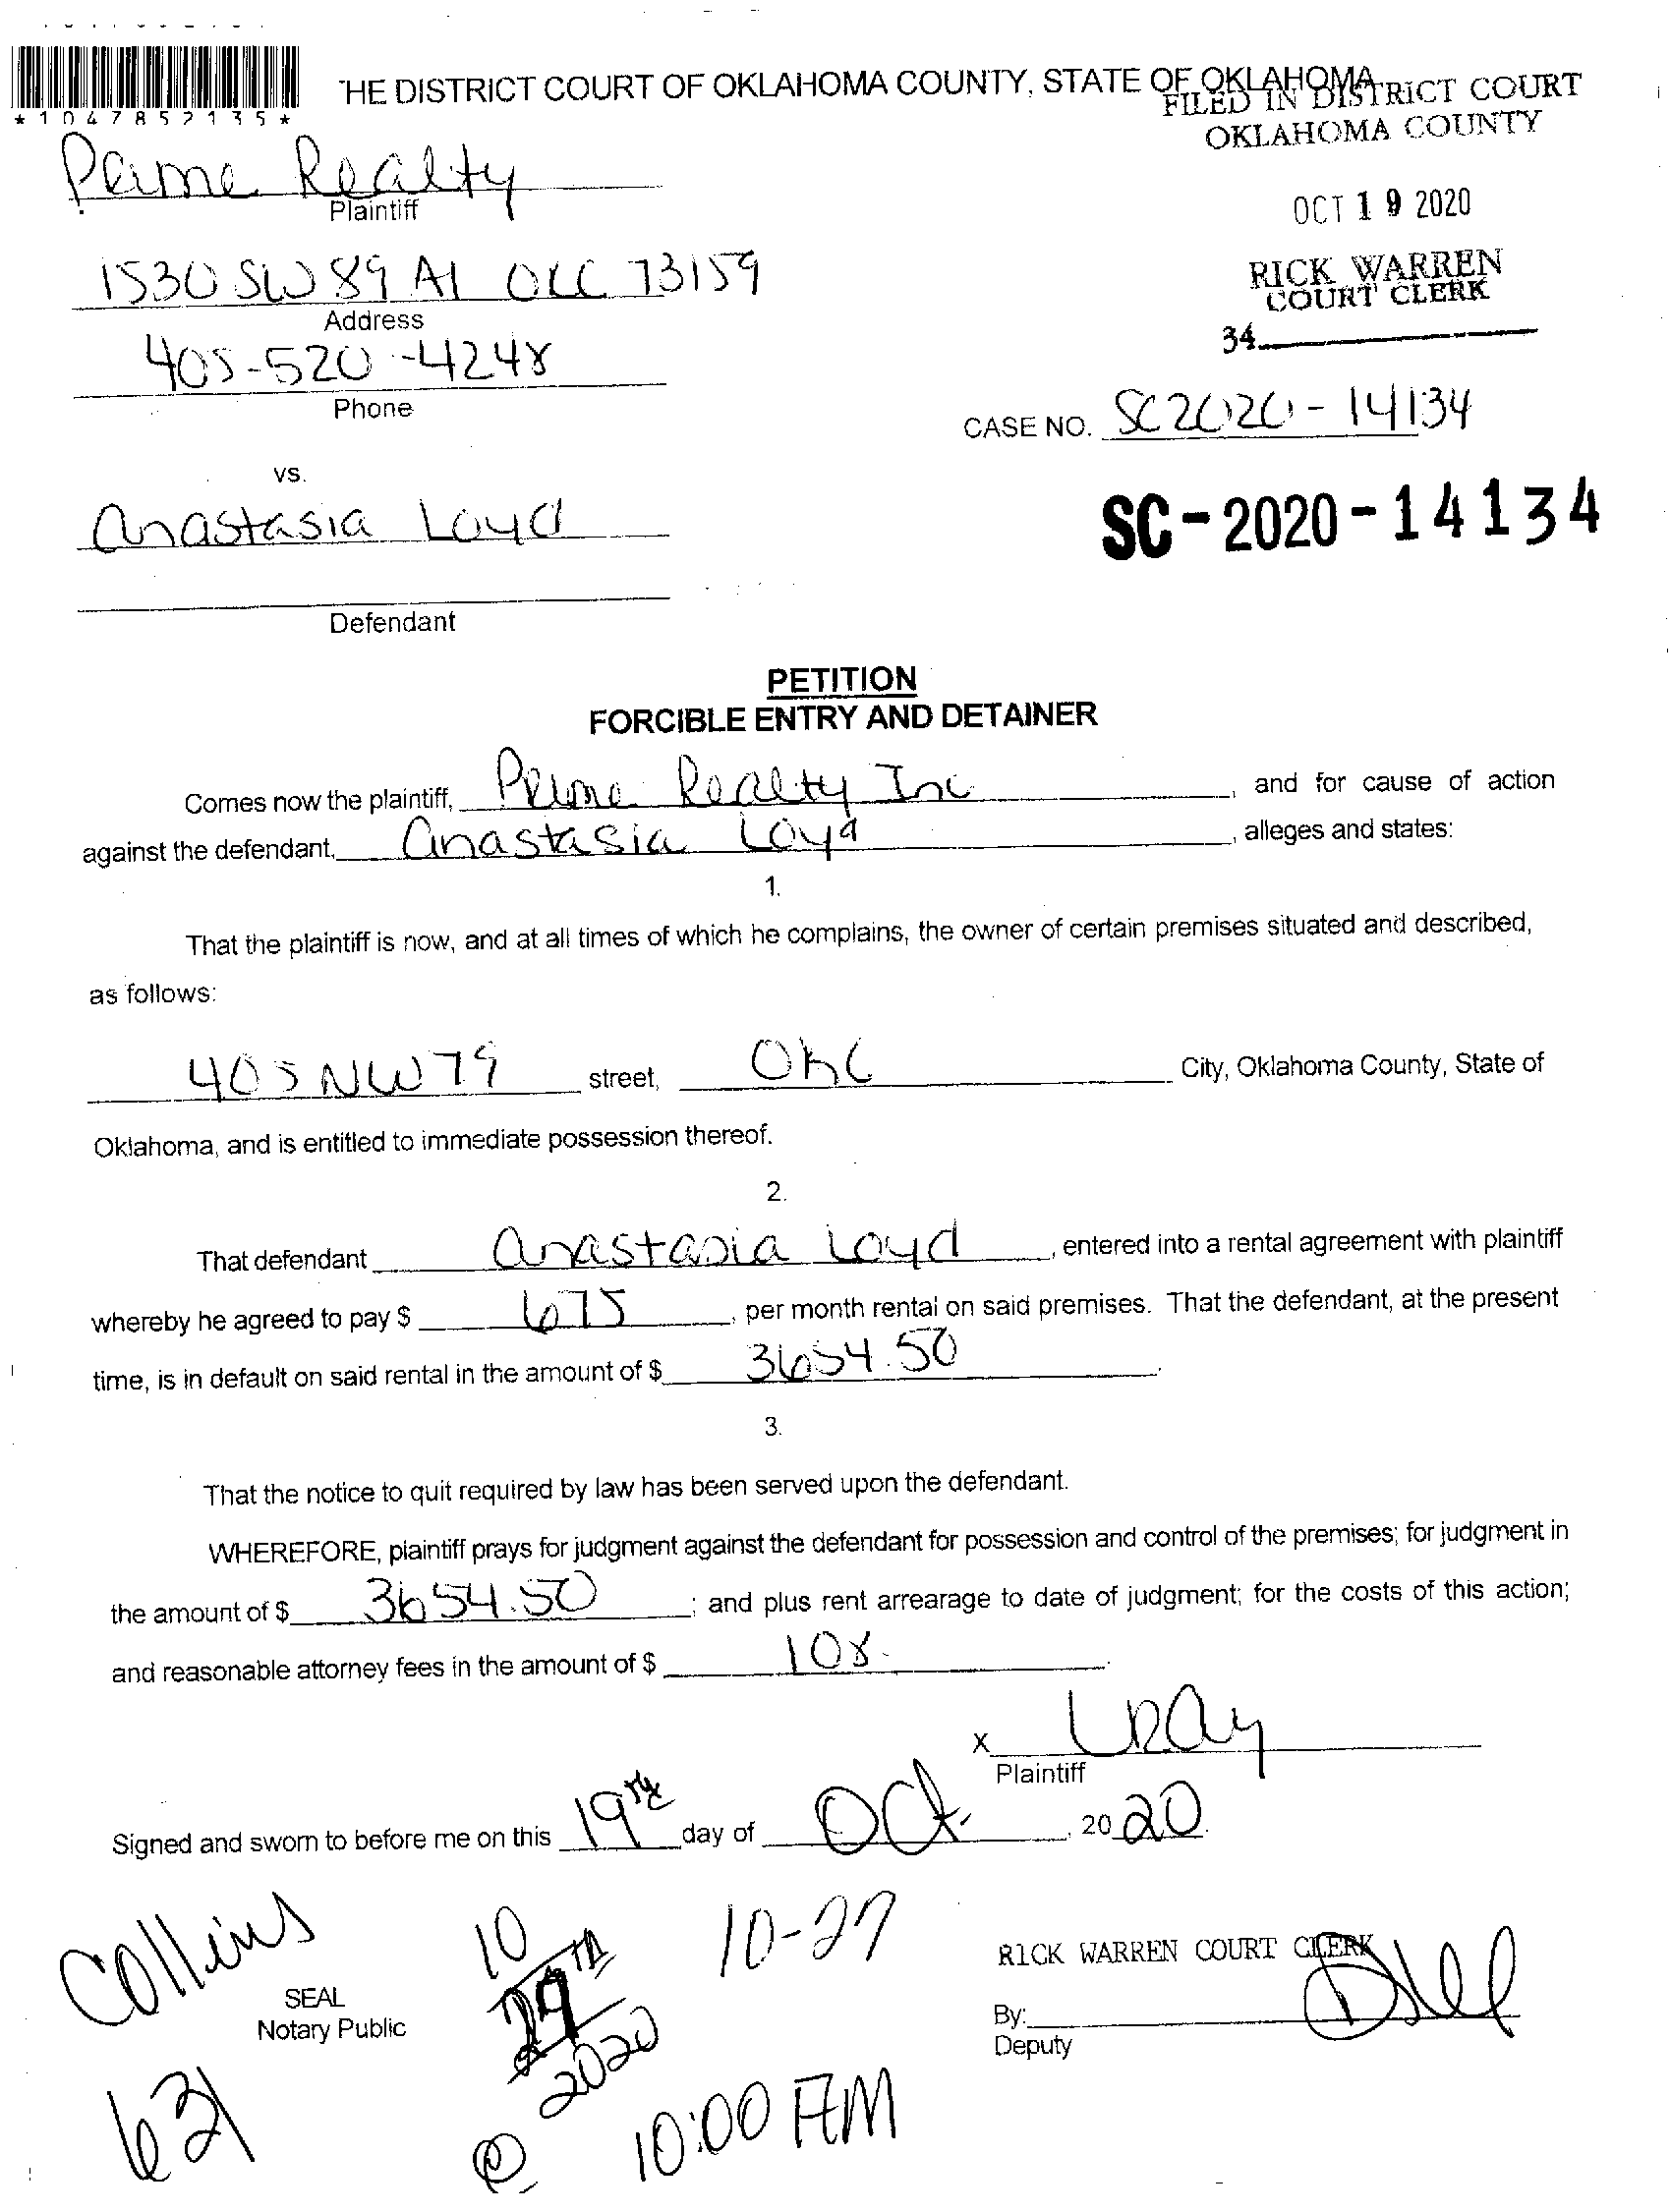 *1047852135*
HE DISTRICT COURT OF OKLAHOMA COUNTY, STATE OF OKLAHOMA
FILED IN DISTRICT COURT
OKLAHOMA COUNTY
OCT 19 2020
RICK WARREN
COURT CLERK
34
Prime Realty
Plaintiff
1530 SW 89 A1 OKC 73159
Address
405-520-4248
Phone
CASE NO. SC2020-14134
vs.
SC-2020-14134
Anastasia Loyd
Defendant
PETITION
FORCIBLE ENTRY AND DETAINER
Comes now the plaintiff, Prime Realty Inc, and for cause of action
against the defendant, Anastasia Loyd, alleges and states:
1.
That the plaintiff is now, and at all times of which he complains, the owner of certain premises situated and described,
as follows:
405 NW 79 street, OKC City, Oklahoma County, State of
Oklahoma, and is entitled to immediate possession thereof.
2.
That defendant Anastasia Loyd, entered into a rental agreement with plaintiff
whereby he agreed to pay $ 675, per month rental on said premises. That the defendant, at the present
time, is in default on said rental in the amount of $ 3654.50.
3.
That the notice to quit required by law has been served upon the defendant.
WHEREFORE, plaintiff prays for judgment against the defendant for possession and control of the premises; for judgment in
the amount of $ 3654.50; and plus rent arrearage to date of judgment; for the costs of this action;
and reasonable attorney fees in the amount of $ 108.
X
Plaintiff
Signed and sworn to before me on this 19th day of Oct., 2020.
Collins
10
10-27
RICK WARREN COURT CLERK
SEAL
Notary Public
2020
By:
Deputy
631
@ 10:00 AM